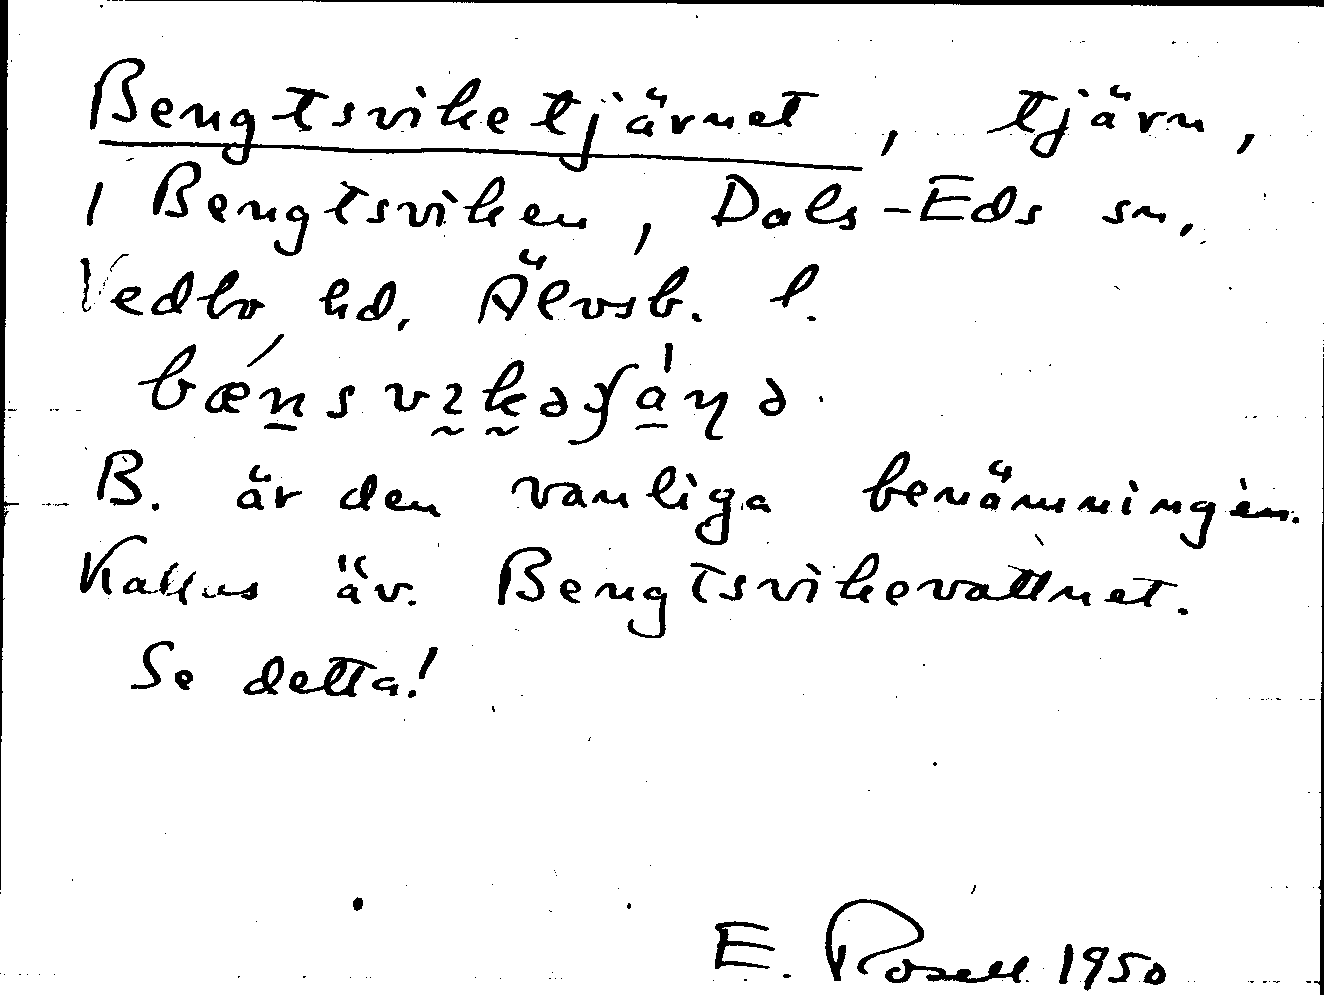 Bengtsviketjärnet, tjärn,
i Bengtsviken, Dals-Eds sn,
Vedbo hd, Älvsb. l.
B. är den vanliga benämningen.
Kallas äv. Bengtsvikevattnet.
Se detta!
E. Rosell 1950